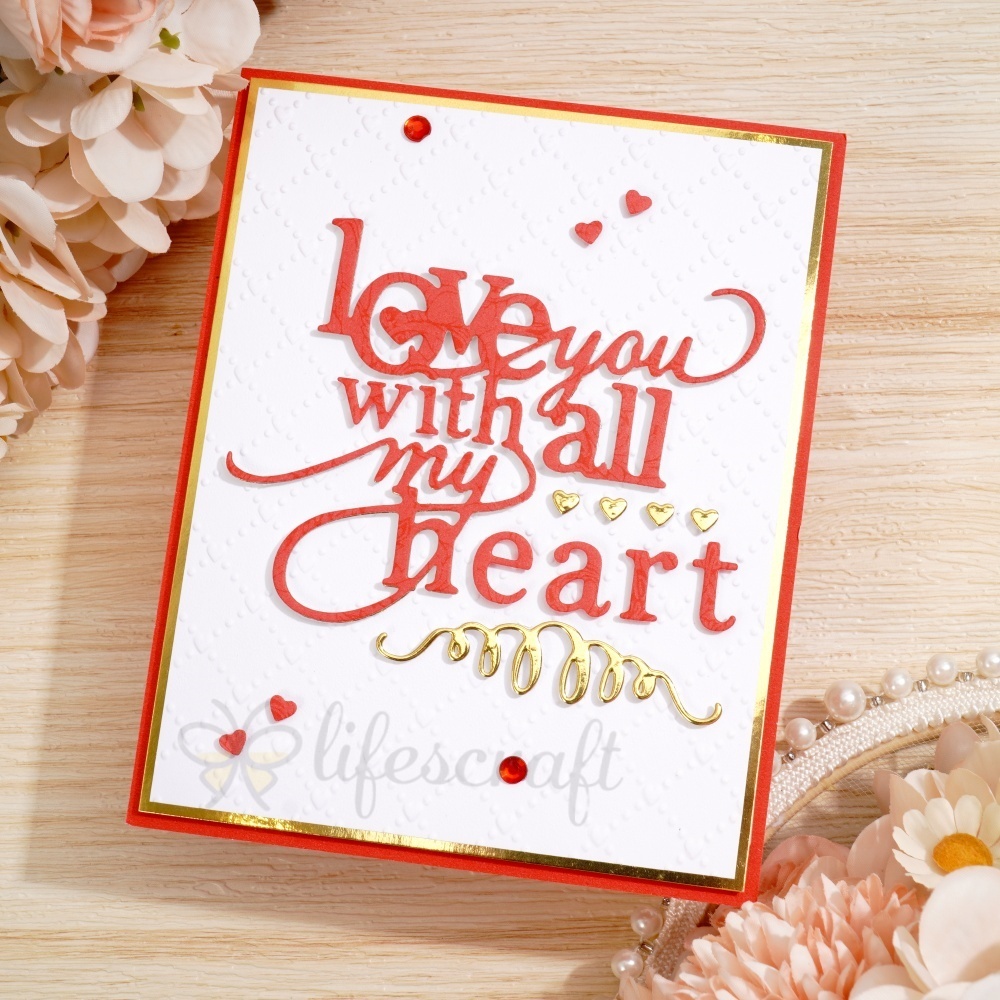 love you
with all
my
heart
lifescraft